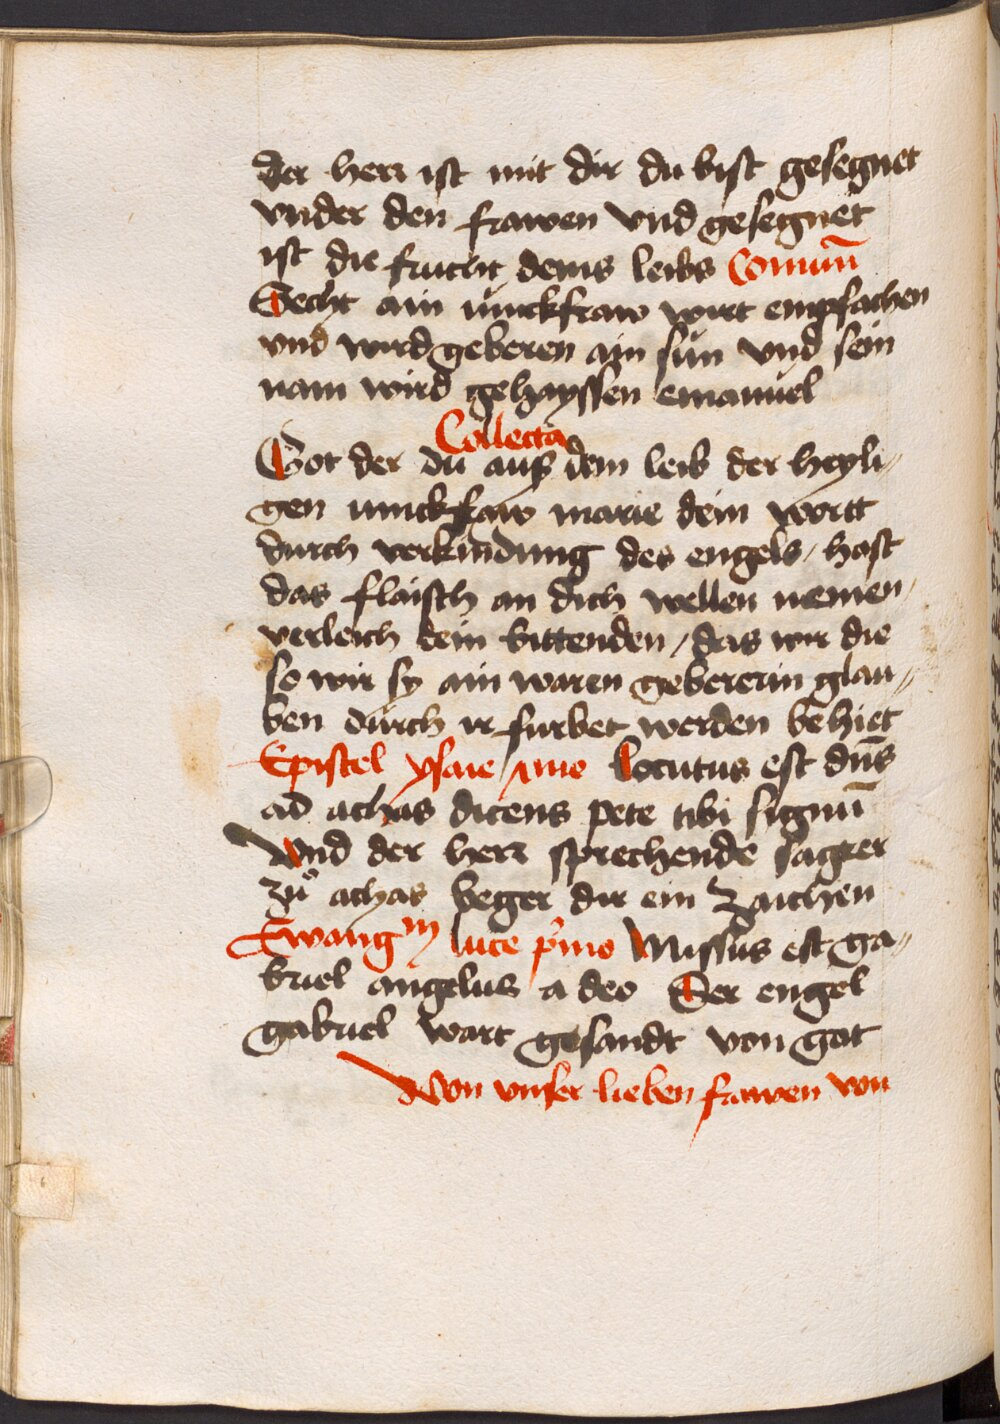 der herr ist mit dir du bist gesegnet
vnder den frawen vnd gesegnet
ist die frucht deins leibs Comuñ
Secht ain iunckfraw wirt empfachen
vnd wird geberen ain sun vnd sein
nam wird gehayssen emanuel
Collecta
Got der du auß dem leib der heyli„
gen iunckfraw marie dein wortt
durch verkindung des engels / hast
das flaisch an dich wellen nemen /
verleich dein bittenden / das wir die
so wir sy ain waren gebererin glau„
ben durch ir furbet werden behiet
Epistel ysaie locutus est dns̄
ad achas dicens pete tibi signū
Vnd der herr sprechende sagter
zů achas beger dir ein zaichen
Ewangm̄ luce p̄mo Missus est ga„
briel angelus a deo Der engel
gabriel wart gesandt von got
Von vnser lieben frawen von